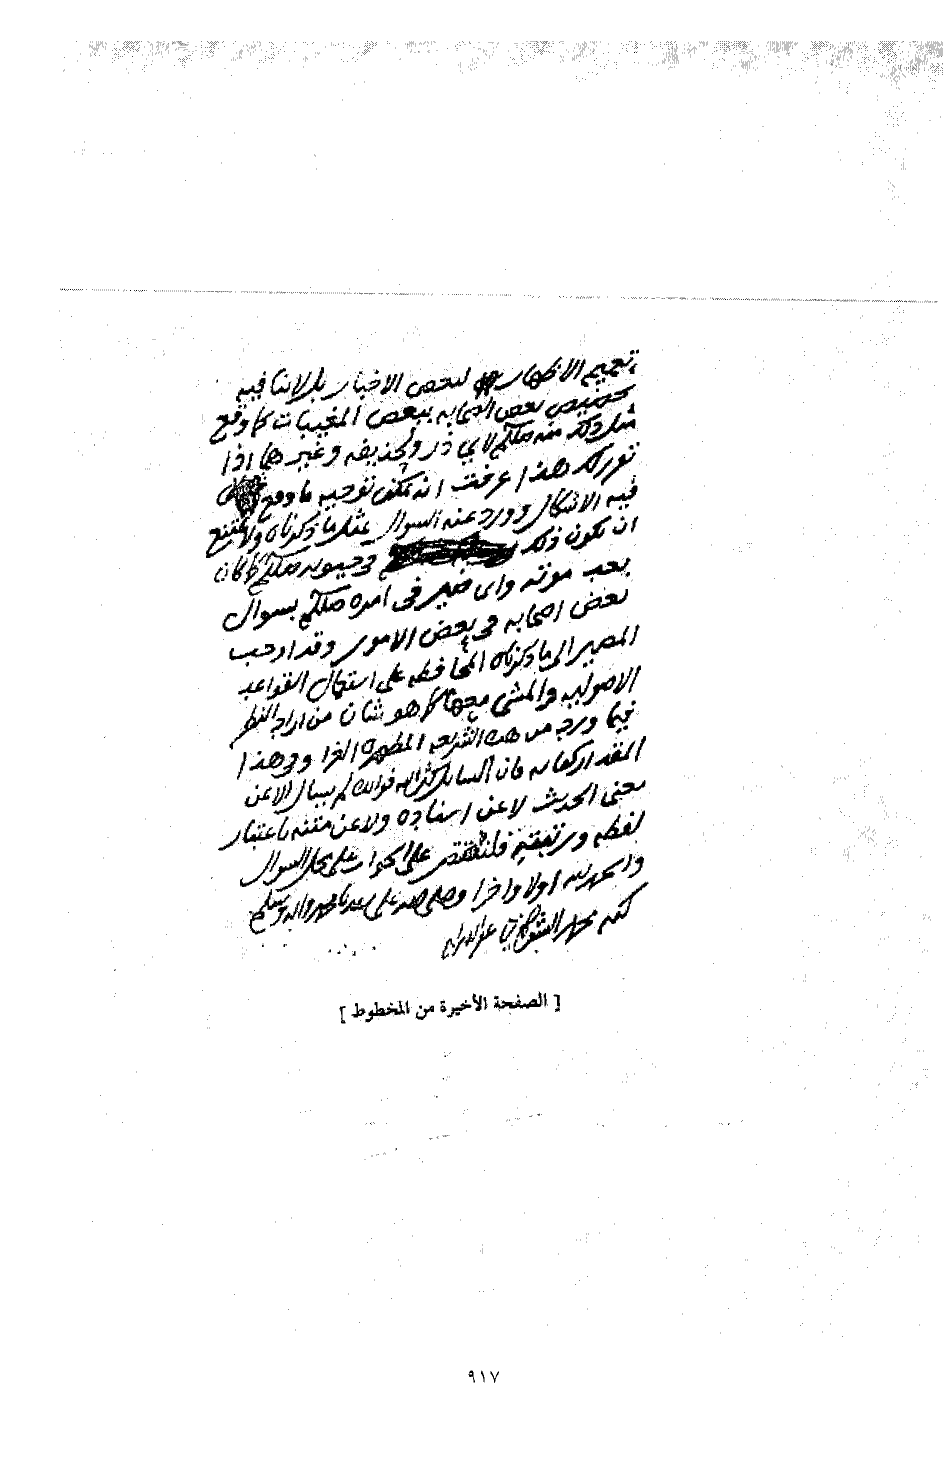 تعميم الاظهار لبعض الاخبار بل لاينافيه
تخصيص بعض الصحابه ببعض المغيبات كما وقع
مثل ذلك منه صللم لابي ذر ولحذيفه وغيرهما اذا
تقرر لك هذا عرفت انه يمكن توجيه ما وقع
فيه الاشكال وورد عنه السوال بمثل ما ذكرناه ولا يمتنع
ان يكون ذلك في حيوته صللم كما كان
بعد موته واي ضير في امره صللم بسوال
بعض اصحابه في بعض الامور وقد اوجب
المصير الى ما ذكرناه المحافظه على استعمال القواعد
الاصوليه والمشي معها كما هو شان من اراد النظر
فيما ورد من هذه الشريعه المطهره الغرا وفي هذا
المقدار كفايه فان السايل كثر الله فوايده لم يسال الا عن
معنى الحديث لا عن اسناده ولا عن متنه باعتبار
لفظه ورتبته فلنقتصر على الجواب على محل السوال
والحمد لله اولا واخرا وصلى الله على سيدنا محمد واله وسلم
كتبه محمد الشوكاني غفر الله له
[ الصفحة الأخيرة من المخطوط ]
٩١٧